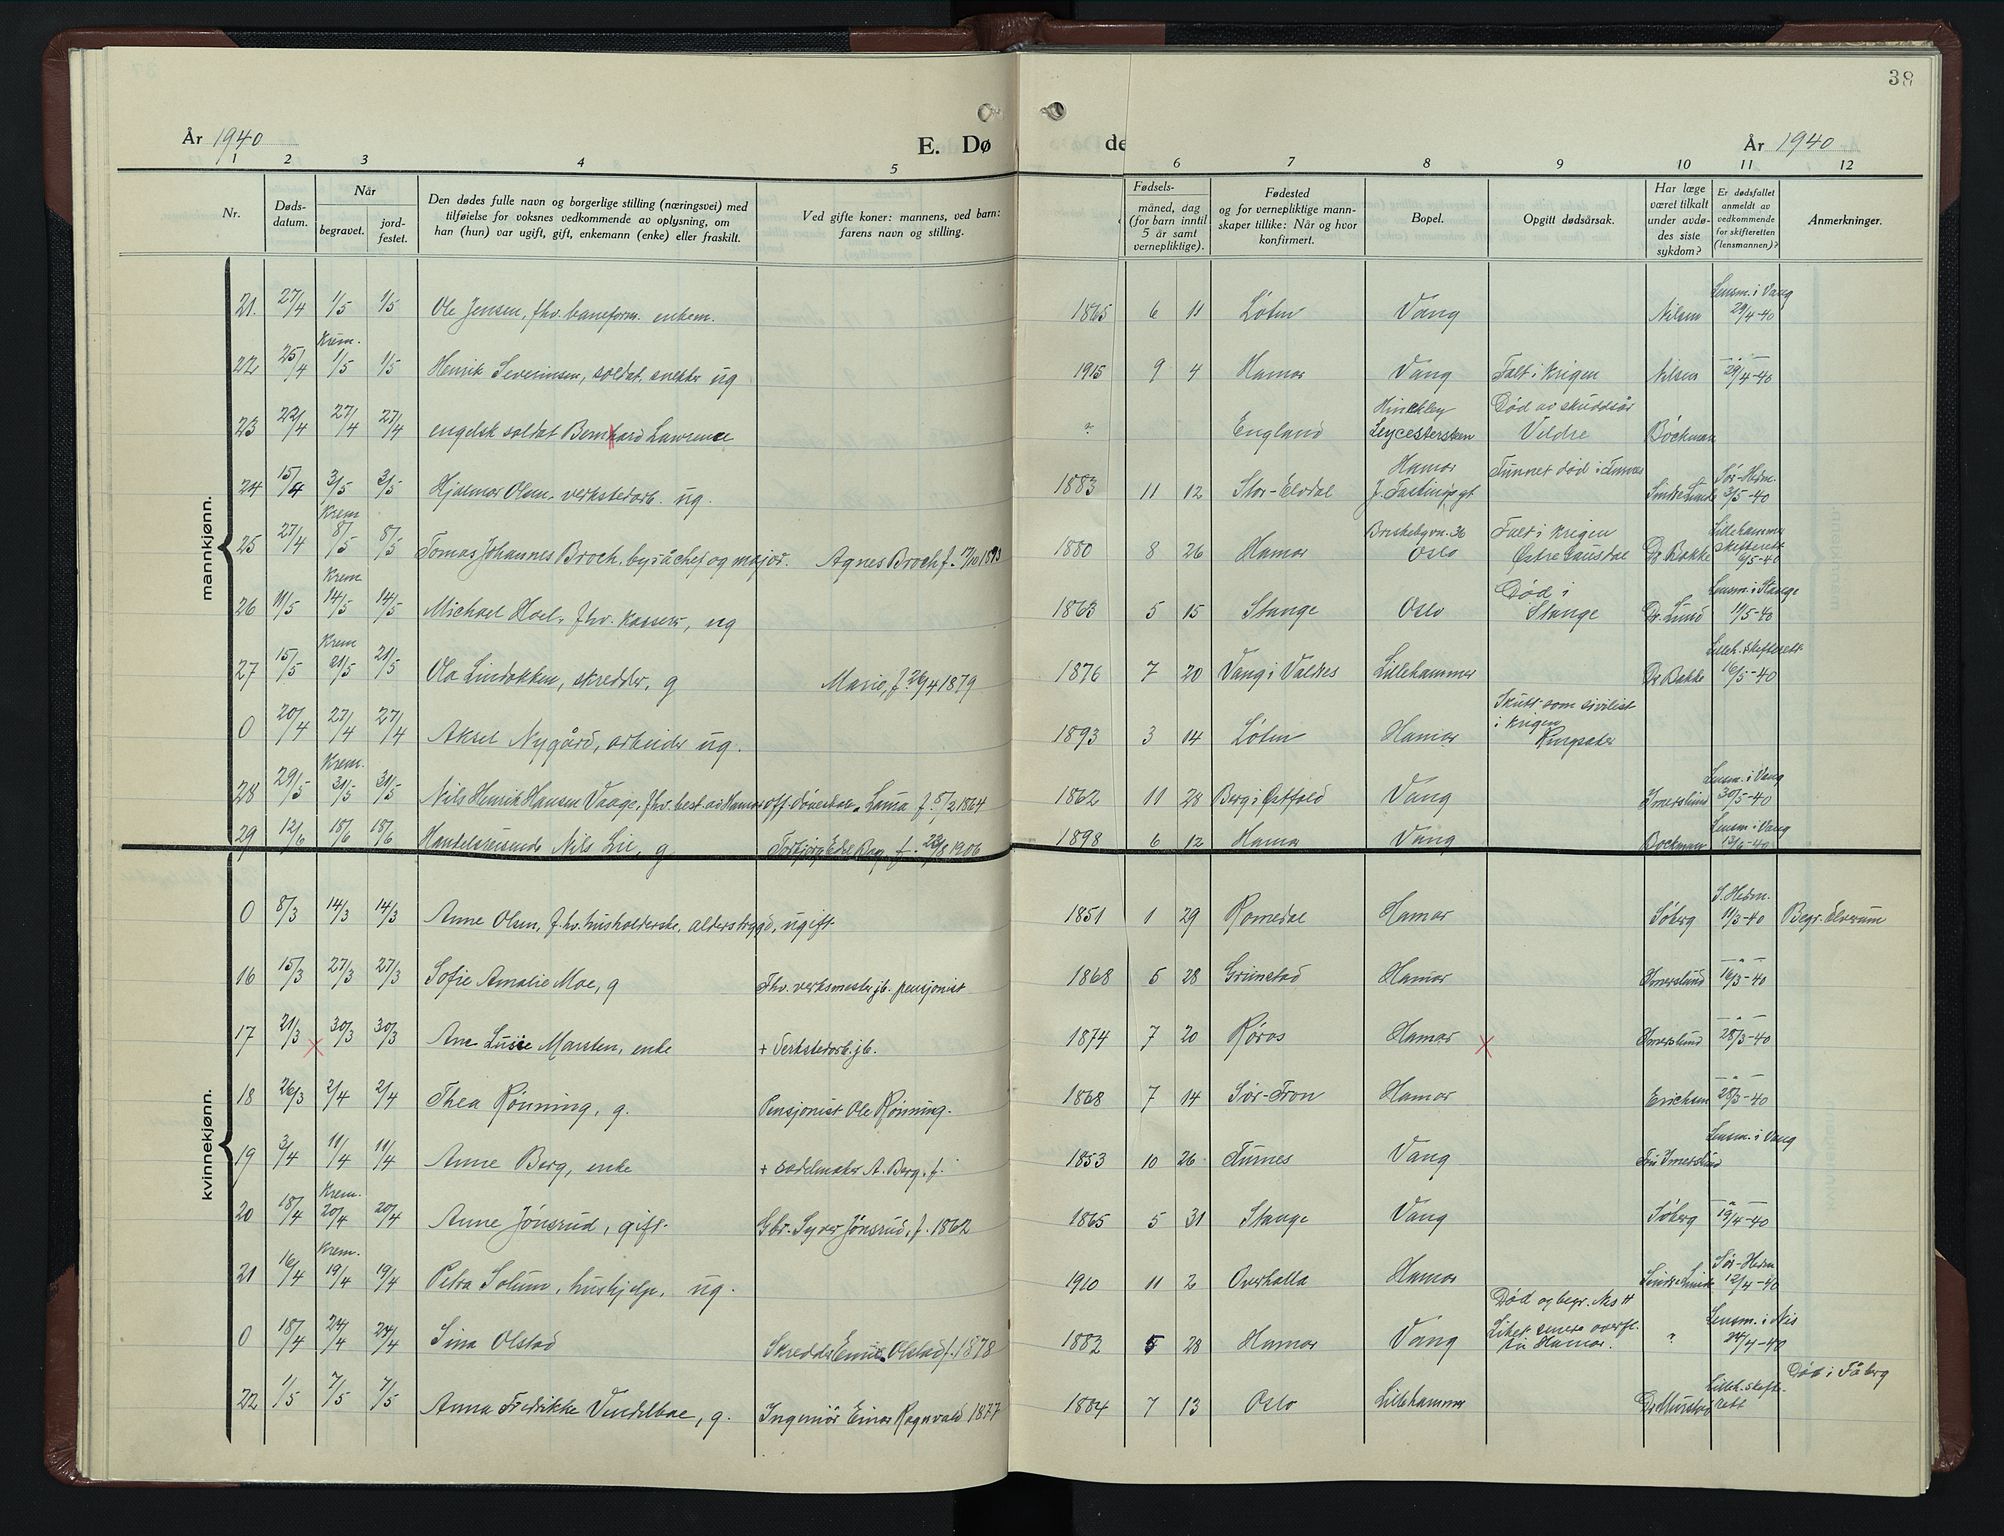 38
År 1940
E. Dø
de
År 1940
1 2 3 4 5 6 7 8 9 10 11 12
Nr.
Døds-
datum.
Når
begravet.
jord-
festet.
Den dødes fulle navn og borgerlige stilling (næringsvei) med
tilføielse for voksnes vedkommende av oplysning, om
han (hun) var ugift, gift, enkemann (enke) eller fraskilt.
Ved gifte koner: mannens, ved barn:
farens navn og stilling.
Fødsels-
måned, dag
(for barn inntil
5 år samt
vernepliktige).
Fødested
og for vernepliktige mann-
skaper tillike: Når og hvor
konfirmert.
Bopel.
Opgitt dødsårsak.
Har læge
været tilkalt
under avdø-
des siste
sykdom?
Er dødsfallet
anmeldt av
vedkommende
for skifteretten
(lensmannen)?
Anmerkninger.
mannkjønn.
Lensm. i Vang
21. 27/4 1/5 1/5 Ole Jensen, fhv. baneform. enkem. 1865 6 11 Løten Vang Nilsen 29/4-40
Krem.
22 25/4 1/5 1/5 Henrik Severinsen, soldat, snekker ug 1915 9 4 Hamar Vang Falt i krigen Nilsen 29/4-40
Hinckley Død av skuddsår
23 22/4 27/4 27/4 engelsk soldat Bernhard Lawrence ? England Leycestershem Veldre Bøckman
Hamar Funnet død i Furnes Sør-Hedm.
24 15/4 3/5 3/5 Hjalmar Olsen, verkstedarb. ug. 1883 11 12 Stor-Elvdal J. Fastings gt Sindre Lunde 3/5-40
Krem Bruskebyvn. 36 Falt i krigen Lillehammer skifterett
25 27/4 8/5 8/5 Tomas Johannes Broch, byråchef og major. Agnes Broch f. 17/10 1893 1880 8 26 Hamar Oslo Østre Gausdal Dr. Bakke 6/5-40
Krem Død i Lensm. i Stange
26 11/5 14/5 14/5 Michael Hoel, fhv. kasserer, ug 1863 5 15 Stange Oslo Stange Dr. Lund 11/5-40
Krem Lilleh. skifterett
27 15/5 21/5 21/5 Ola Lindokken, skredder, g Marie, f. 26/4 1879 1876 7 20 Vang i Valdres Lillehammer Dr. Bakke 16/5-40
Skutt som sivilist
i krigen
0 20/4 27/4 27/4 Aksel Nygård, arbeider ug. 1893 3 14 Løten Hamar Ringsaker
Krem. Lensm. i Vang
28 29/5 31/5 31/5 Nils Henrik Hansen Vaage, fhv. best. av Hamar off. døveskole. Laura f. 5/2 1864 1862 11 28 Berg i Østfold Vang Imerslund 30/5-40
Lensm. i Vang
29 12/6 18/6 18/6 Handelsreisende Nils Lie, g Torbjørg Edel Dag, f. 23/8 1906 1898 6 12 Hamar Vang Bockman 13/6-40
kvinnekjønn.
S. Hedm.
0 8/3 14/3 14/3 Anne Olsen, f.hv. husholderske, alderstrygd, ugift 1851 1 29 Romedal Hamar Søberg 11/3-40 Begr. Elverum
16 15/3 27/3 27/3 Sofie Amalie Moe, g Fhv. verksmester jb. pensjonist 1868 5 28 Grimstad Hamar Imerslund 16/3-40
17 21/3 × 30/3 30/3 Ane Lusie Marsten, enke + Verkstedarb. jb. 1874 7 20 Røros Hamar × Imerslund 28/3-40
18 26/3 2/4 2/4 Thea Rønning, g. Pensjonist Ole Rønning. 1868 7 14 Sør-Fron Hamar Erichsen 28/3-40
Lensm. i Vang
19 3/4 11/4 11/4 Anne Berg, enke + sadelmaker A. Berg, f. 1853 10 26 Furnes Vang Fru Imerslund
Krem.
20 18/4 20/4 20/4 Anne Jønsrud, gift. Gbr. Syver Jønsrud, f. 1862 1865 5 31 Stange Vang Søberg 19/4-40
Krem. Sør-Hedm
21 16/4 19/4 19/4 Petra Solum, hushjelp, ug. 1910 11 2 Overhalla Hamar Sindre Lunde 12/4-40
Død og begr. Nes H Lensm. i Nes
0 18/4 24/4 24/4 Sina Olstad Skredder Emil Olstad f. 1878 1882 5 28 Hamar Vang Liket senere overf. til Hamar. " 24/4-40
Lilleh. skifte- Død i Fåberg
22 1/5 7/5 7/5 Anna Fredrikke Vendelboe, g. Ingeniør Einar Ragnvald 1877 1884 7 13 Oslo Lillehammer Dr. Murstad rett